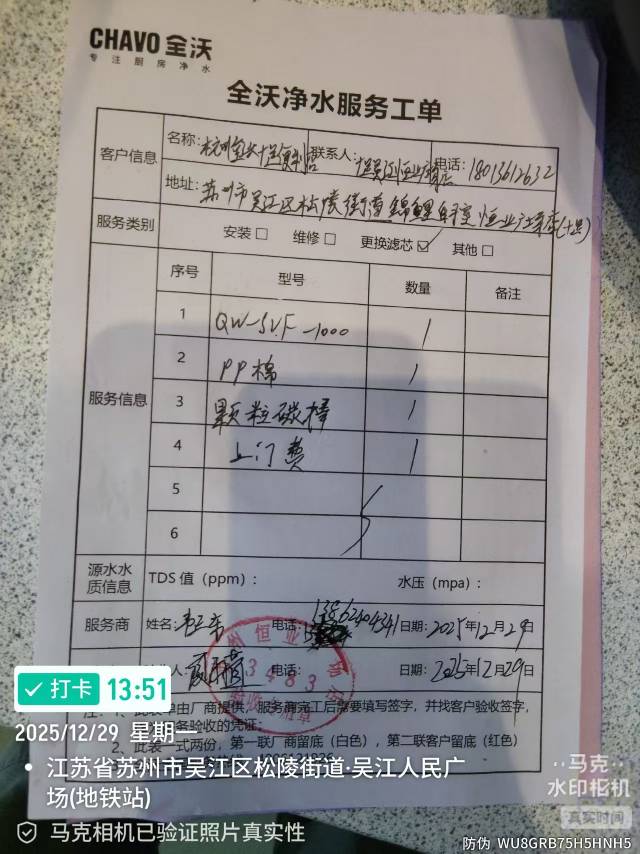 CHAVO 全沃
专注厨房净水
全沃净水服务工单
客户信息
名称:
联系人:
电话: 18013612632
地址: 苏州市吴江区松陵街道
服务类别
安装□ 维修□ 更换滤芯☑ 其他□
服务信息
序号 型号 数量 备注
1 QW-SVF-1000 1
2 PP棉 1
3 颗粒碳棒 1
4 上门费 1
5
6
源水水质信息
TDS 值(ppm): 水压(mpa):
服务商 姓名: 电话: 13862404341 日期: 2025年12月29日
电话: 日期: 2025年12月29日
由厂商提供,服务商完工后需要填写签字,并找客户验收签字,
务验收的凭证;
2、此表一式两份,第一联厂商留底(白色),第二联客户留底(红色)
打卡 13:51
2025/12/29 星期一
江苏省苏州市吴江区松陵街道·吴江人民广
场(地铁站)
马克相机已验证照片真实性
马克
水印相机
真实时间
防伪 WU8GRB75H5HNH5